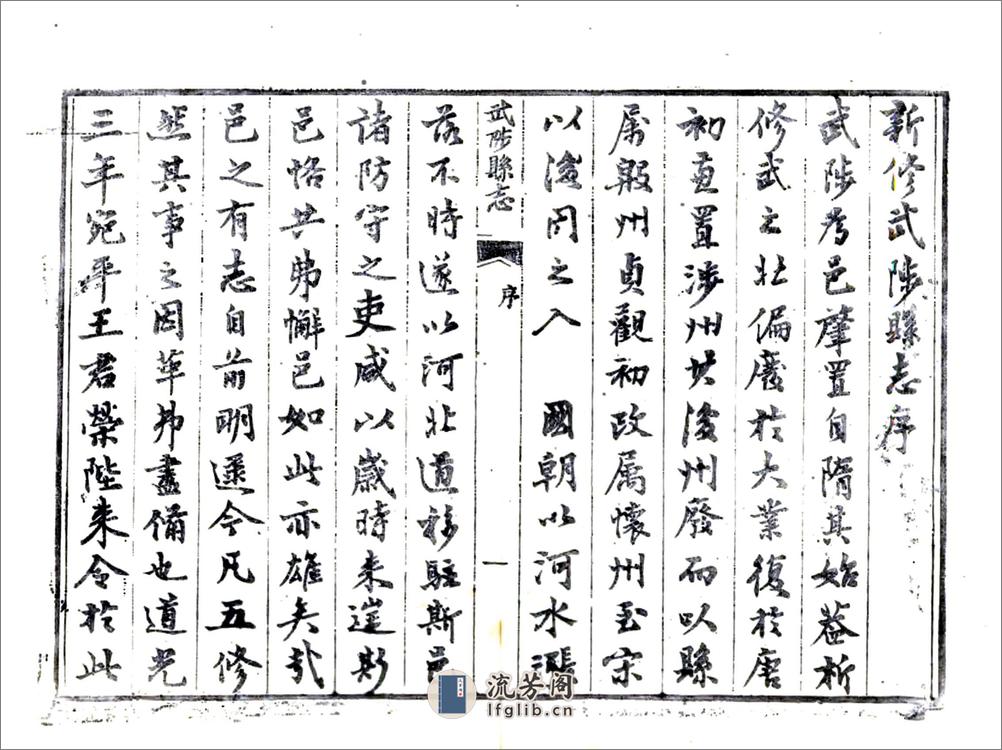 新修武陟縣志序
武陟考邑肇置自隋其始蓋析
修武之北偏廢於大業復於唐
初更置涉州其後州廢而以縣
屬殷州貞觀初改屬懷州至宋
以後因之入 國朝以河水漲
武陟縣志 序 一
落不時遂以河北道移駐斯邑
諸防守之吏咸以歲時来莅斯
邑恪共弗懈邑如此亦雄矣哉
邑之有志自前明迄今凡五修
然其事之因革弗盡備也道光
三年宛平王君榮陛来令於此
流芳阁
lfglib.cn